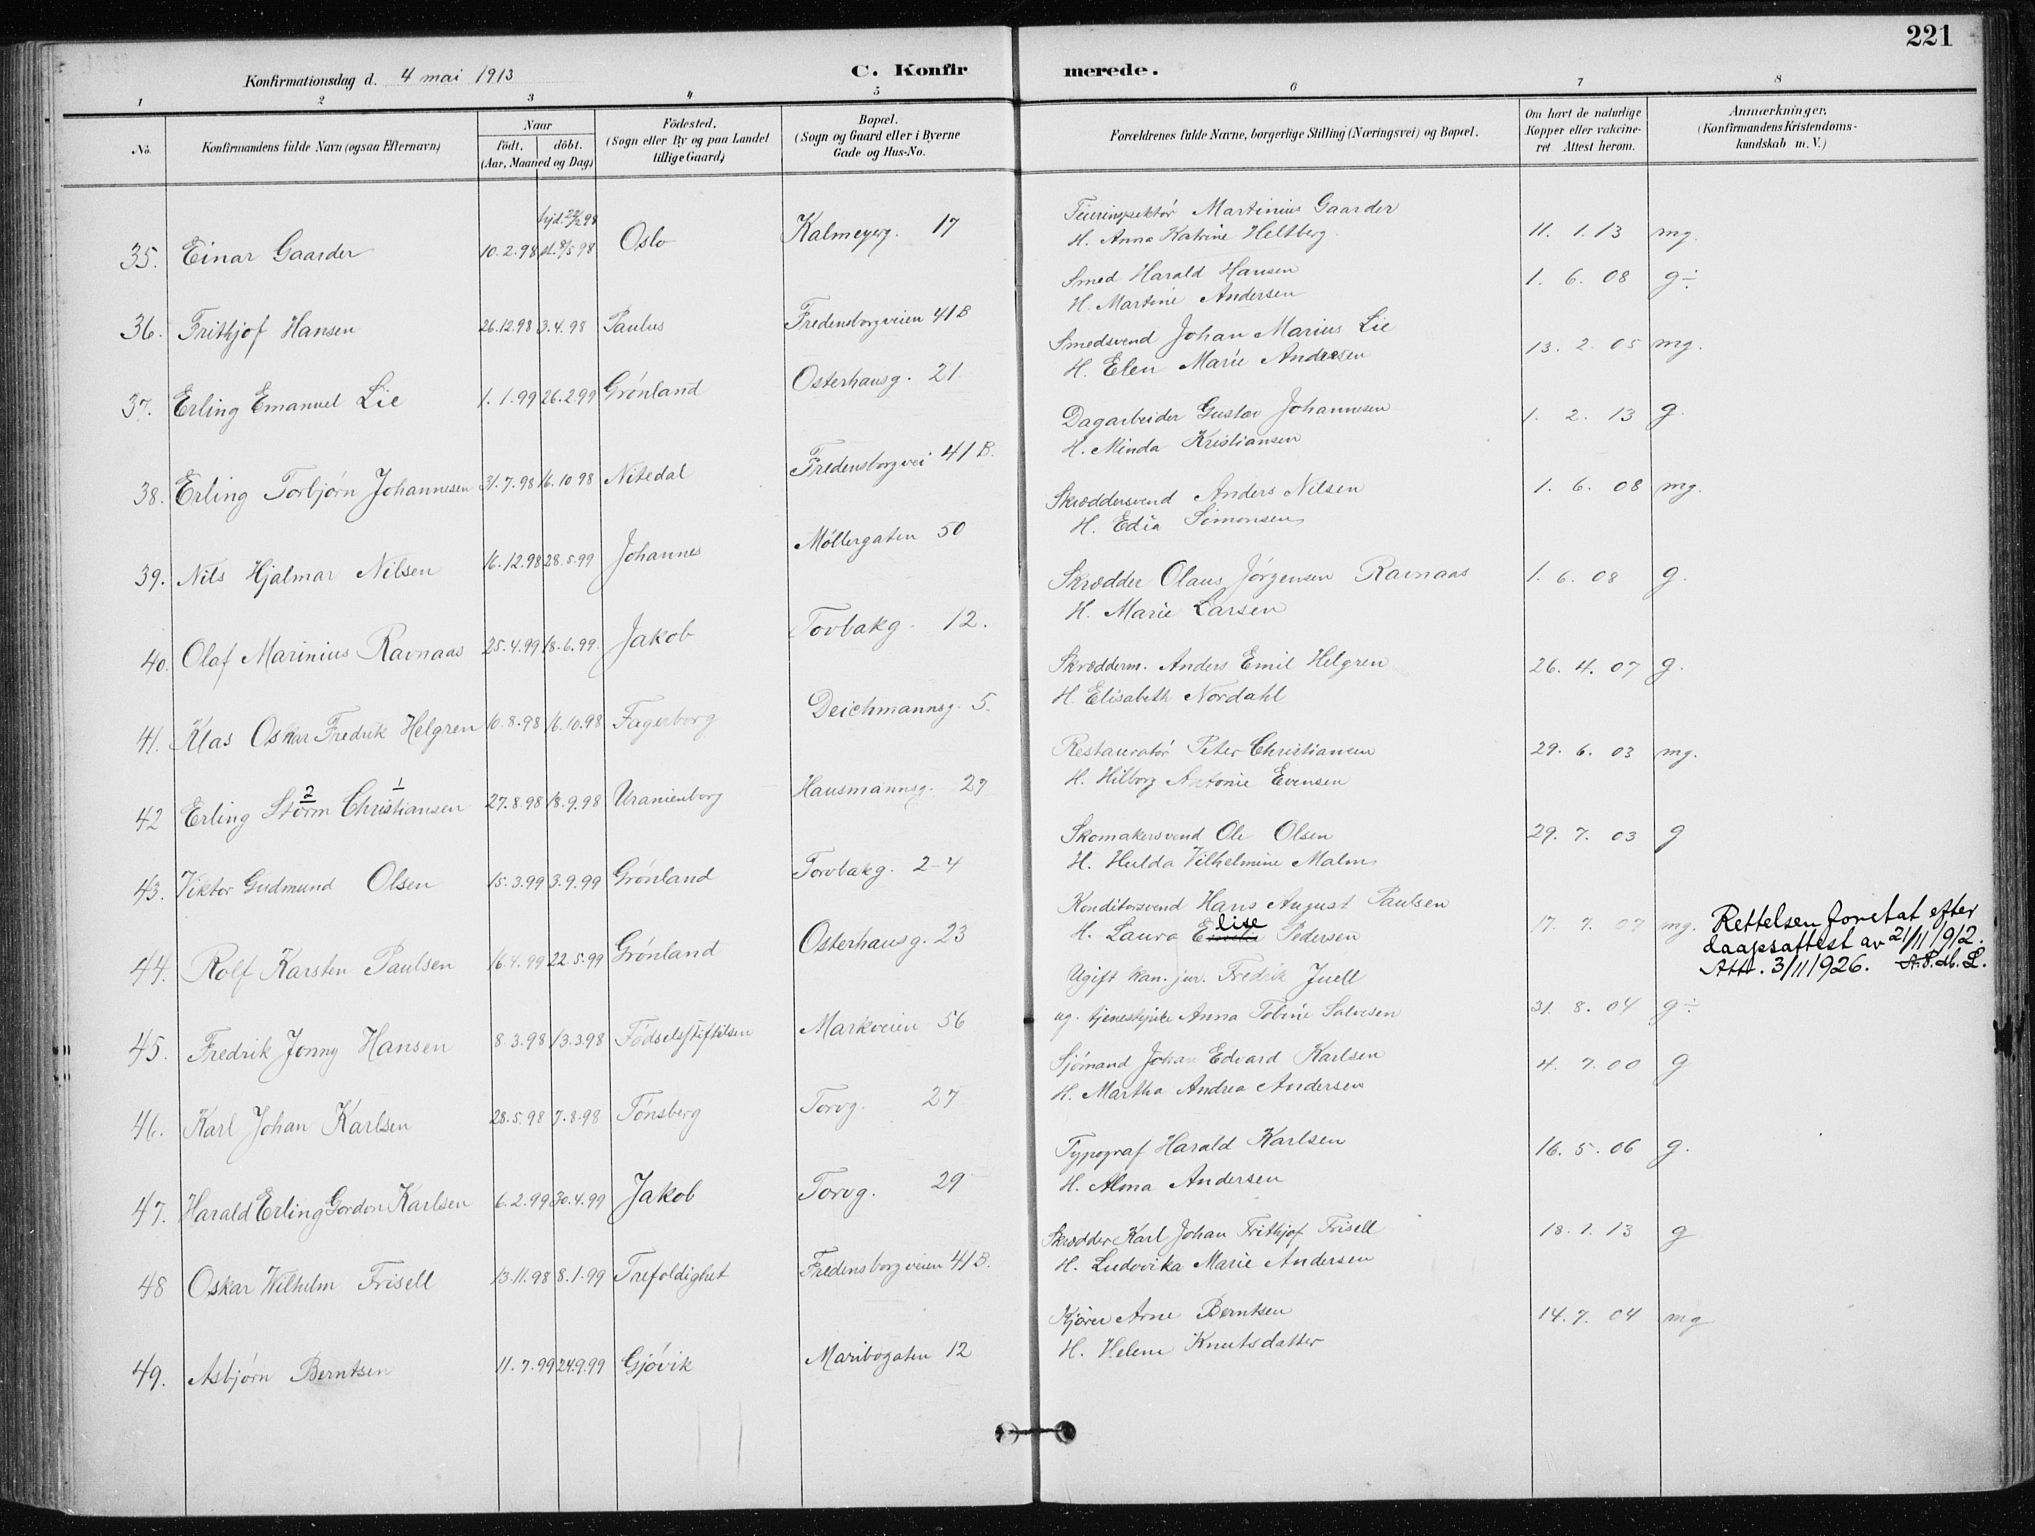 221
Konfirmationsdag d. 4 mai 1913
C. Konfirmerede.
1 2 3 4 5 6 7 8
No. Konfirmandens fulde Navn (ogsaa Efternavn) Naar født. døbt. (Aar, Maaned og Dag) Fødested. (Sogn eller By og paa Landet tillige Gaard) Bopæl. (Sogn og Gaard eller i Byerne Gade og Hus-No. Forældrenes fulde Navne, borgerlige Stilling (Næringsvei) og Bopæl. Om havt de naturlige Kopper eller vakcineret. Attest herom. Anmærkninger, (Konfirmandens Kristendomskundskab m. V.)
35. Einar Gaarder 10.2.98 hjd. 22/2 98 st. 8/5 98 Oslo Kalmeyerg. 17 Feierinspektør Martinius Gaarder
H. Anna Katrine Heltberg 11. 1. 13 mg.
36. Frithjof Hansen 26.12.98 3.4.98 Paulus Fredensborgveien 41B Smed Harald Hansen
H. Martine Andersen 1. 6. 08 g÷
37. Erling Emanuel Lie 1.1.99 26.2.99 Grønland Osterhausg. 21 Smedsvend Johan Marius Lie
H. Elen Marie Andersen 13. 2. 05 mg.
38. Erling Torbjørn Johannesen 31.7.98 16.10 98 Nitedal Fredensborgvei 41B. Dagarbeider Gustav Johannesen
H. Minda Kristiansen 1. 2. 13 g.
39. Nils Hjalmar Nilsen 16.12.98 28.5.99 Johannes Møllergaten 50 Skræddersvend Anders Nilsen
H. Edia Simonsen 1. 6. 08 mg.
40. Olaf Marinius Ravnaas 25.4.99 18.6.99. Jakob Torvbakg. 12. Skrædder Olaus Jørgensen Ravnaas
H. Marie Larsen 1. 6. 08 g.
41. Klas Oskar Fredrik Helgren 10.8.98 16.10.98 Fagerborg Deichmannsg. 5. Skrædderm. Anders Emil Helgren
H. Elisabeth Nordahl 26. 4. 07 g.
42 Erling Storm 2 Christiansen 1 27.8.98 18.9.98 Uranienborg Hausmannsg. 27 Restauratør Peter Christiansen
H. Hilborg Antonie Evensen 29. 6. 03 mg.
43. Viktor Gudmund Olsen 15.3.99 3.9.99 Grønland Torvbakg. 2-4 Skomakersvend Ole Olsen
H. Hulda Vilhelmine Malm 29. 7. 03 g
44. Rolf Karsten Paulsen 16.4.99 22.5.99 Grønland Osterhausg. 23 Konditorsvend Hans August Paulsen
H. Laura Elise Pedersen 17. 7. 07 mg. Rettelsen foretat efter
daapsattest av 21/11 1912.
Att. 3/11 1926.
45. Fredrik Jonny Hansen 8.3.98 13.3.98 Fødselsstiftelsen Markveien 56 Ugift kan. jur. Fredrik Juell
ug. tjenestepike Anna Tobine Salvesen 31. 8. 04 g÷
46. Karl Johan Karlsen 28.5.98 7.8.98 Tønsberg Torvg. 27 Sjømand Johan Edvard Karlsen
H. Martha Andrea Andersen 4. 7. 00 g
47. Harald Erling Gordon Karlsen 6.2.99 30.4.99 Jakob Torvg. 29 Typograf Harald Karlsen
H. Alma Andersen 16. 5. 06 g.
48 Oskar Wilhelm Frisell 13.11.98 8.1.99 Trefoldighet Fredensborgveien 41B. Skrædder Karl Johan Frithjof Frisell
H. Ludovika Marie Andersen 18. 1. 13 g
49. Asbjørn Berntsen 11.7.99 24.9.99 Gjøvik Maribogaten 12 Kjører Arne Berntsen
H. Helene Knutsdatter 14. 7. 04 mg